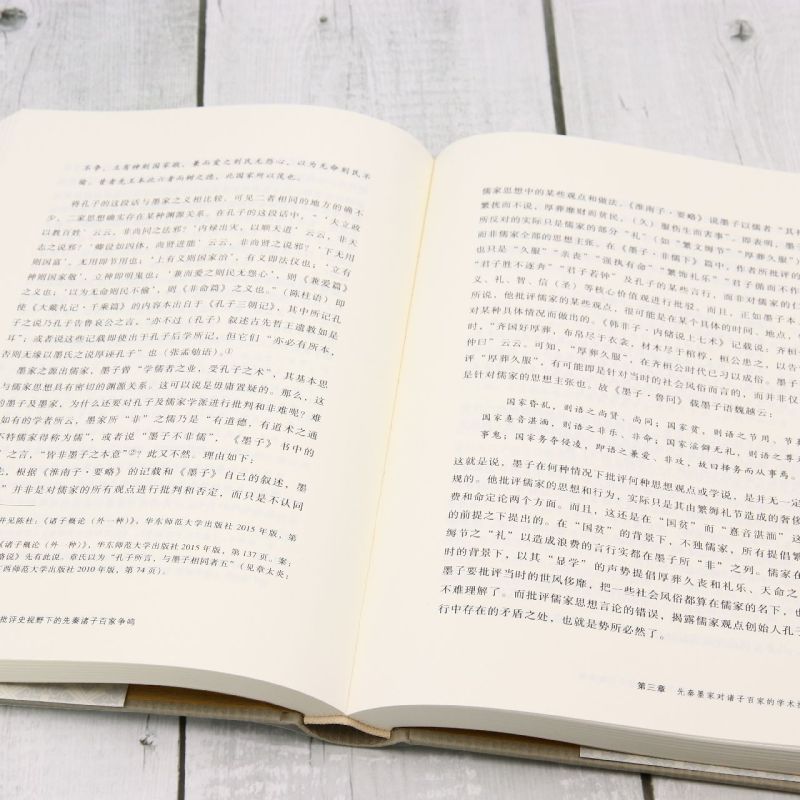 不争，立有神则国家敬，兼而爱之则民无怨心，以为无命则民不
偷。昔者先王本此六者而树之德，此国家所以茂也。
将孔子的这段话与墨家之义相比较，可见二者相同的地方的确不
少，二家思想确实存在某种渊源关系。在孔子的这段话中，“‘大立政
以教百姓’云云，非尚同之法邪？‘内梯出灾，以顺天道’云云，非天
志之说邪？‘卿设如四体，尚贤进能’云云，非尚贤之说邪？‘下无用
则国富’，无用即节用也；‘上有义则国家治’，有义即法仪也；‘立有
神则国家敬’，立神即明鬼也；‘兼而爱之则民无怨心’，则《兼爱篇》
之义也；‘以为无命则民不偷’，则《非命篇》之义也。”（陈柱语）即
使《大戴礼记·千乘篇》的内容本出自于《孔子三朝记》，其中所记孔
子之说乃孔子告鲁哀公之言，“亦不过（孔子）叙述古先哲王遗教如是
耳”；或者说这些记载即使出于孔子后学所记，但它们“亦必有所本，
否则无缘以墨氏之说厚诬孔子”也（张孟劬语）。①
墨家之源出儒家，墨子曾“学儒者之业，受孔子之术”，其基本思
与儒家思想具有密切的渊源关系。这可以说是毋庸置疑的。那么，这
的墨子及墨家，为什么还要对孔子及儒家学派进行批判和非难呢？难
如有的学者所云，墨家所“非”之儒乃是“有道德、有道术之通
不特儒家得称为儒”，或者说“墨子不非儒”，《墨子》书中的
”之言，“皆非墨子之本意”②？此又不然。理由如下：
先，根据《淮南子·要略》的记载和《墨子》自己的叙述，墨
”并非是对儒家的所有观点进行批判和否定，而只是不认同
并见陈柱：《诸子概论（外一种）》，华东师范大学出版社 2015 年版，第
《诸子概论（外一种）》，华东师范大学出版社 2015 年版，第 137 页。案：
略说》先有此说。章氏以为“孔子所言，与墨子相同者五”（见章太炎：
西师范大学出版社 2010 年版，第 74 页）。
批评史视野下的先秦诸子百家争鸣
儒家思想中的某些观点和做法。《淮南子·要略》说墨子以儒者“其礼
繁扰而不说，厚葬靡财而贫民，（久）服伤生而害事”。即表明，墨子
所反对的实际只是儒家的部分“礼”（如“繁文缛节”“厚葬久服”）
而非儒家全部的思想主张。在《墨子·非儒下》篇中，作者所批评的
也只是“久服”“亲丧”“强执有命”“繁饰礼乐”“君子循而不作
“君子胜不逐奔”“君子若钟”及孔子的某些言行，而非对儒家的仁
义、礼、智、信（圣）等核心价值观进行批驳。而且，正如墨子本
所说，他批评儒家的某些观点，很可能是在某个具体的时间、地点，
对某种具体情况而做出的。《韩非子·内储说上七术》记载说：齐桓公
时，“齐国好厚葬，布帛尽于衣衾，材木尽于棺椁，桓公患之，以告
仲曰”云云。可知，“厚葬久服”，在齐桓公时代已习以成俗。墨子
评“厚葬久服”，有可能即是针对当时的社会风俗而言的，而并非仅
是针对儒家的思想主张也。故《墨子·鲁问》载墨子语魏越云：
国家昏乱，则语之尚贤、尚同；国家贫，则语之节用、节葬
国家憙音湛湎，则语之非乐、非命；国家淫僻无礼，则语之尊天
事鬼；国家务夺侵凌，即语之兼爱、非攻，故曰择务而从事焉。
这就是说，墨子在何种情况下批评何种思想观点或学说，是并无一定
规的。他批评儒家的思想和行为，实际只是其由繁缛礼节造成的奢侈
费和命定论两个方面。而且，这还是在“国贫”而“憙音湛湎”这
的前提之下提出的。在“国贫”的背景下，不独儒家，所有提倡繁
缛节之“礼”以造成浪费的言行实都在墨子所“非”之列。儒家在
时的背景下，以其“显学”的声势提倡厚葬久丧和礼乐、天命之
墨子要批评当时的世风侈靡，把一些社会风俗都算在儒家的名下，也
不难理解了。而批评儒家思想言论的错误，揭露儒家观点创始人孔子
行中存在的矛盾之处，也就是势所必然了。
第三章 先秦墨家对诸子百家的学术